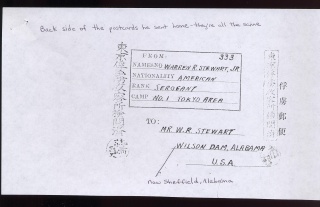 Back side of the postcards he sent home - they're all the same
FROM: 333
NAME&NO WARREN R. STEWART, JR.
NATIONALITY AMERICAN
RANK SERGEANT
CAMP NO. 1 TOKYO AREA
俘虜郵便
TO:
MR. W. R. STEWART
WILSON DAM, ALABAMA
U.S.A.
Now Sheffield, Alabama